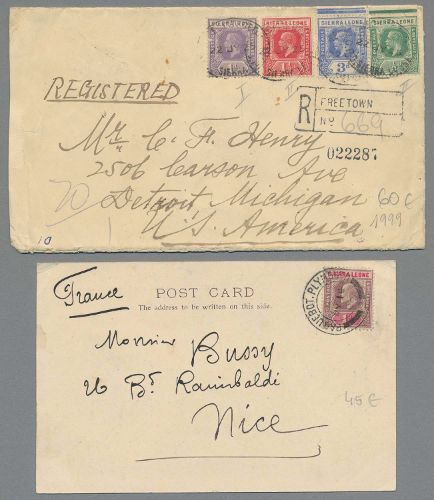 SIERRA LEONE SIERRA LEONE SIERRA LEONE SIERRA LEONE
3d
REGISTERED
R FREETOWN
No 669
022287
Mr. C. F. Henry
2506 Carson Ave
Detroit Michigan
U.S. America
60 €
1999
France
POST CARD
The address to be written on this side.
SIERRA LEONE
PAQUEBOT. PLYM
Monsieur Bussy
26 Bd Raimbaldi
Nice
45 €